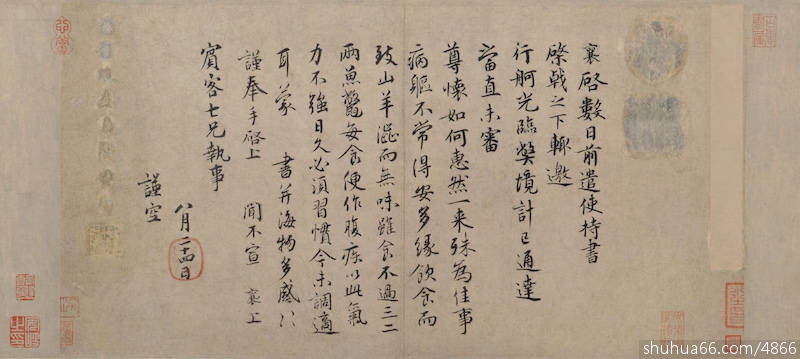 襄啓數日前遣使持書
棨戟之下輒邀
行舸光臨弊境計已通達
當直未審
尊懷如何惠然一来殊為佳事
病軀不常得安多緣飲食而
致山羊澀而無味雖食不過三二
兩魚鼈每食便作腹疾以此氣
力不強日久必須習慣今未調適
耳蒙 書并海物多感〻
謹奉手啓上 聞不宣 襄上
賓客七兄執事
八月二十四日
謹空
shuhua66.com/4866